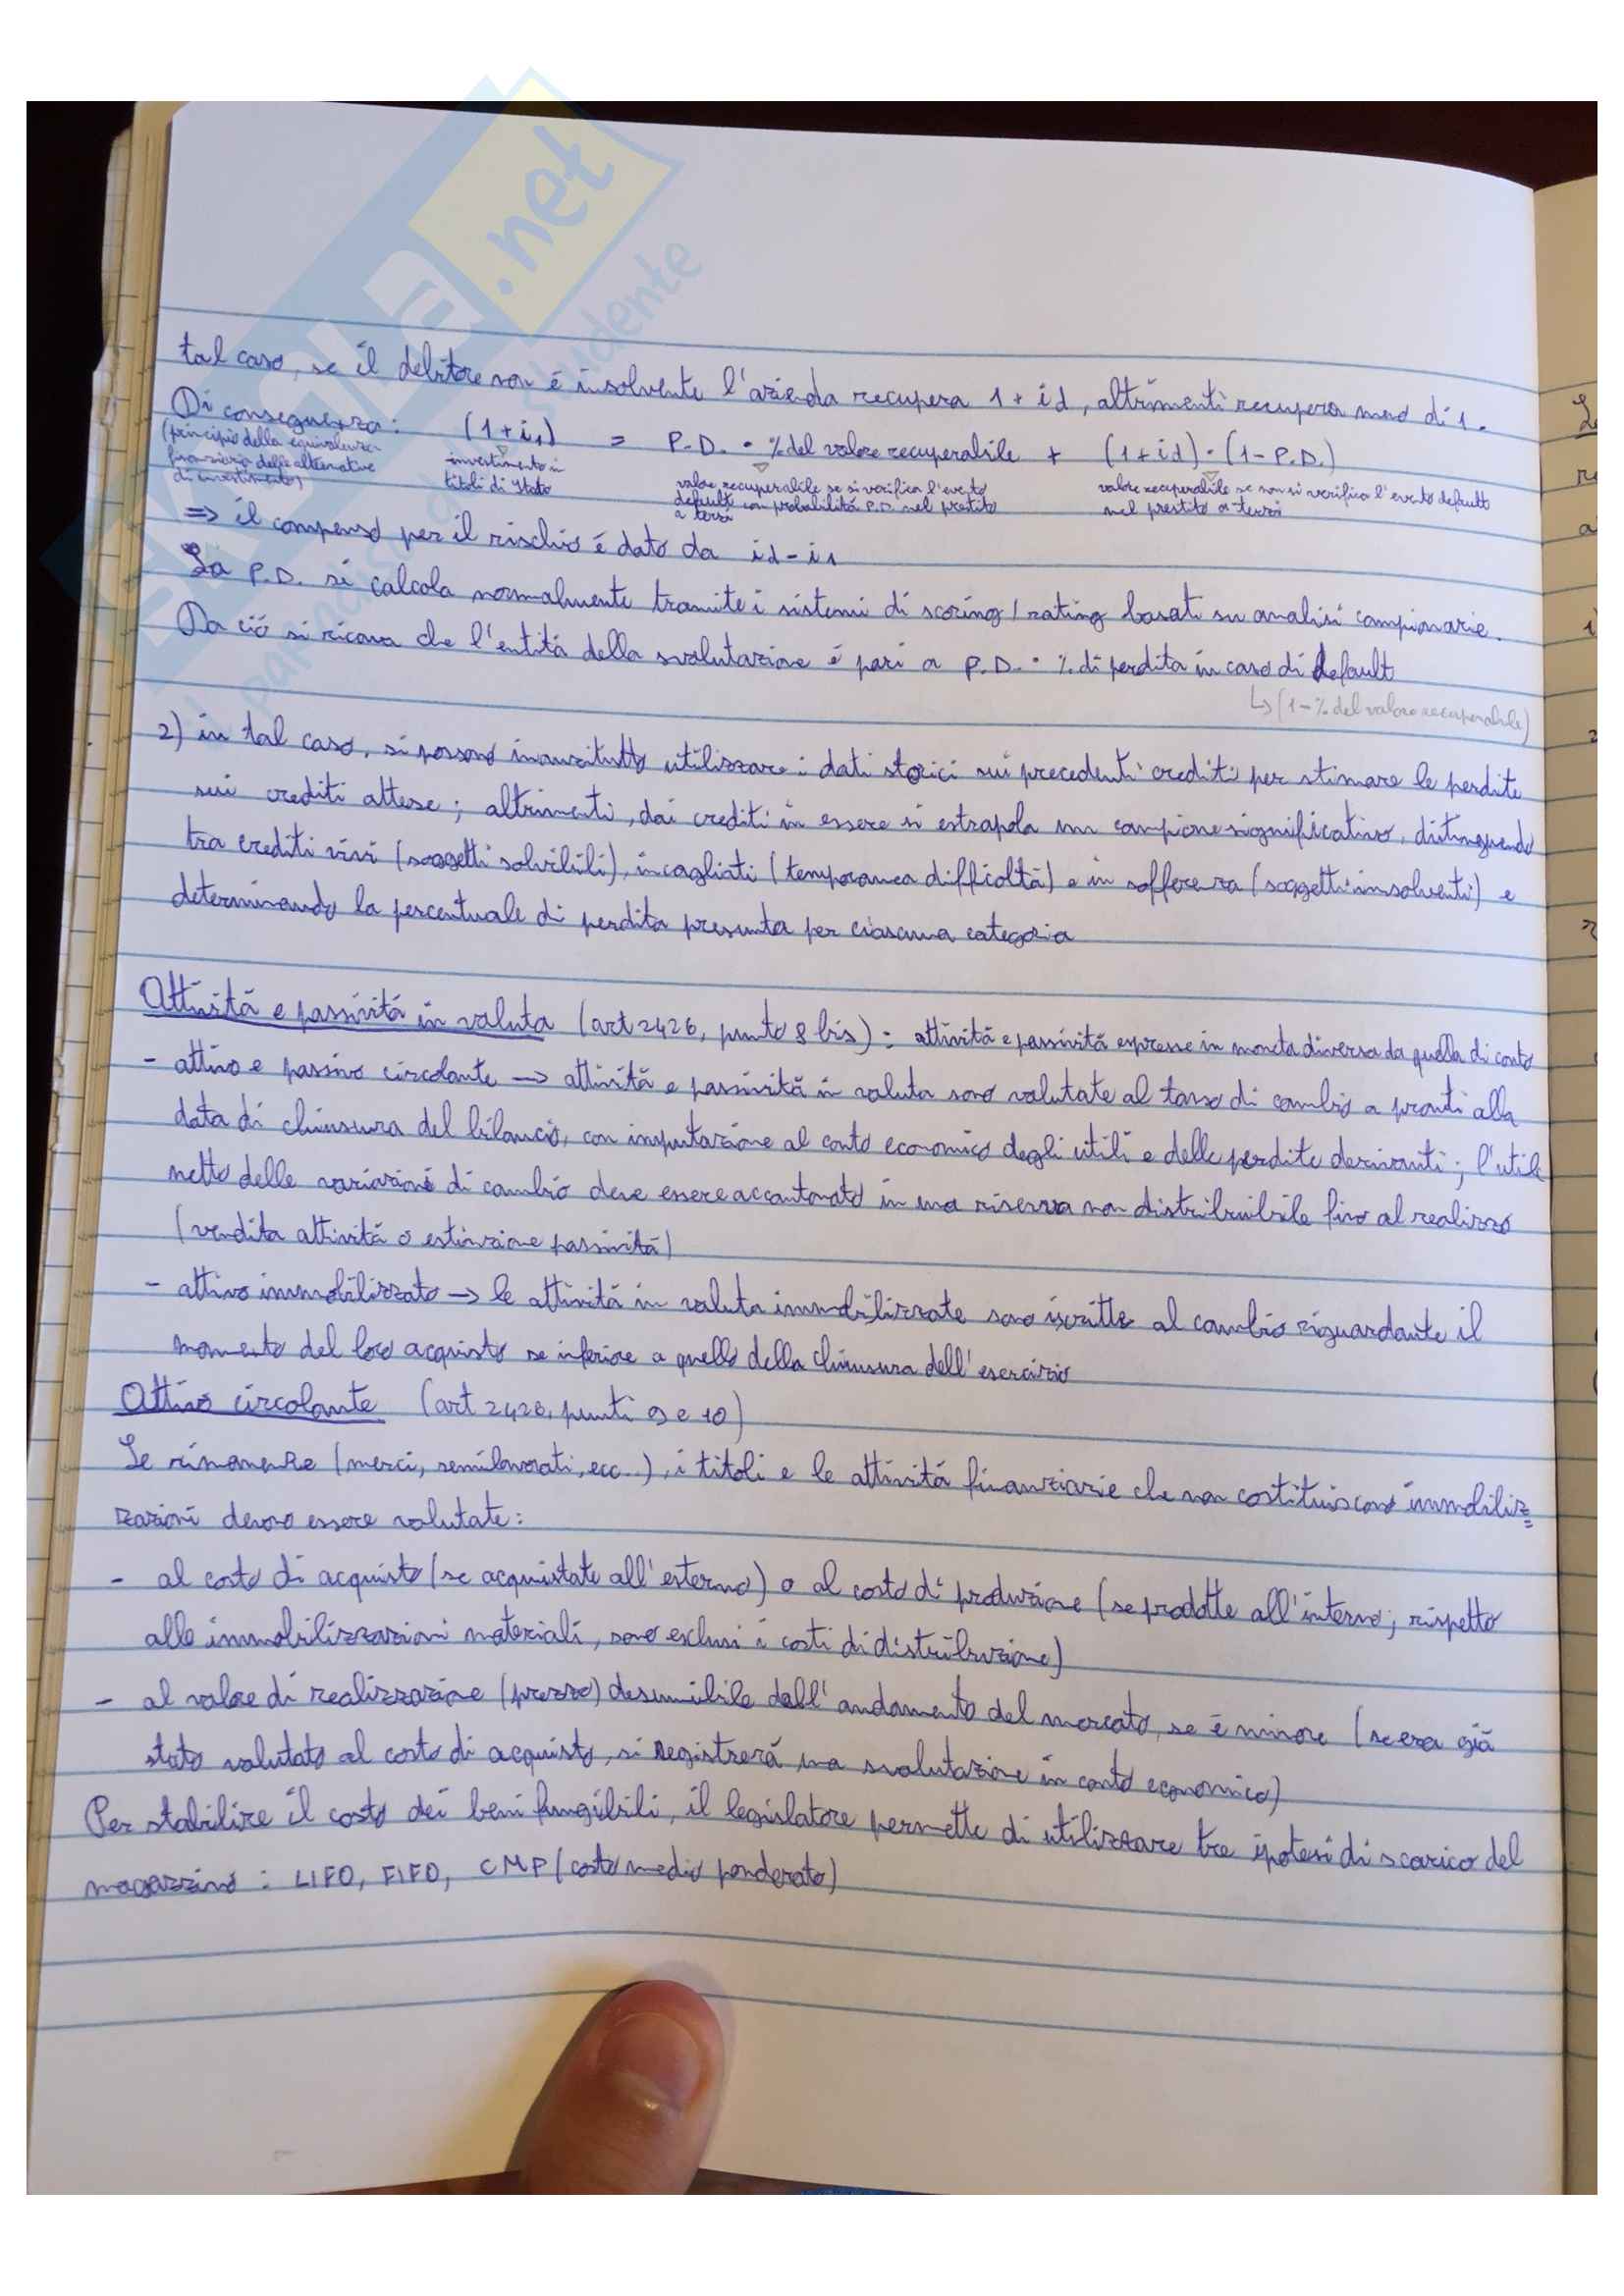 tal caso, se il debitore non é insolvente l'azienda recupera 1 + id, altrimenti recupera meno di 1.
Di conseguenza: (1+i1) = P.D. · % del valore recuperabile + (1+id) · (1-P.D.)
(principio della equivalenza
finanziaria delle alternative
di investimento)
investimento in
titoli di Stato
valore recuperabile se si verifica l'evento
default con probabilitá P.D. nel prestito
a terzi
valore recuperabile se non si verifica l'evento default
nel prestito a terzi
=> il compenso per il rischio é dato da id - i1
La P.D. si calcola normalmente tramite i sistemi di scoring/rating basati su analisi campionarie.
Da ció si ricava che l'entitá della svalutazione é pari a P.D. · % di perdita in caso di default
↳ (1-% del valore recuperabile)
2) in tal caso, si possono innanzitutto utilizzare i dati storici sui precedenti crediti per stimare le perdite
sui crediti attese; altrimenti, dai crediti in essere si estrapola un campione significativo, distinguendo
tra crediti vivi (soggetti solvibili), incagliati (temporanea difficoltá) e in sofferenza (soggetti insolventi) e
determinando la percentuale di perdita presunta per ciascuna categoria
Attivitá e passivitá in valuta (art 2426, punto 8 bis): attivitá e passivitá espresse in moneta diversa da quella di conto
- attivo e passivo circolante -> attivitá e passivitá in valuta sono valutate al tasso di cambio a pronti alla
data di chiusura del bilancio, con imputazione al conto economico degli utili e delle perdite derivanti; l'utile
netto delle variazioni di cambio deve essere accantonato in una riserva non distribuibile fino al realizzo
(vendita attivitá o estinzione passivitá)
- attivo immobilizzato -> le attivitá in valuta immobilizzate sono iscritte al cambio riguardante il
momento del loro acquisto se inferiore a quello della chiusura dell'esercizio
Attivo circolante (art 2426, punti 9 e 10)
Le rimanenze (merci, semilavorati, ecc..), i titoli e le attivitá finanziarie che non costituiscono immobiliz=
zazioni devono essere valutate:
- al costo di acquisto (se acquistate all'esterno) o al costo di produzione (se prodotte all'interno; rispetto
alle immobilizzazioni materiali, sono esclusi i costi di distribuzione)
- al valore di realizzazione (prezzo) desumibile dall'andamento del mercato, se é minore (se era giá
stato valutato al costo di acquisto, si registrerá una svalutazione in conto economico)
Per stabilire il costo dei beni fungibili, il legislatore permette di utilizzare tre ipotesi di scarico del
magazzino: LIFO, FIFO, CMP (costo medio ponderato)